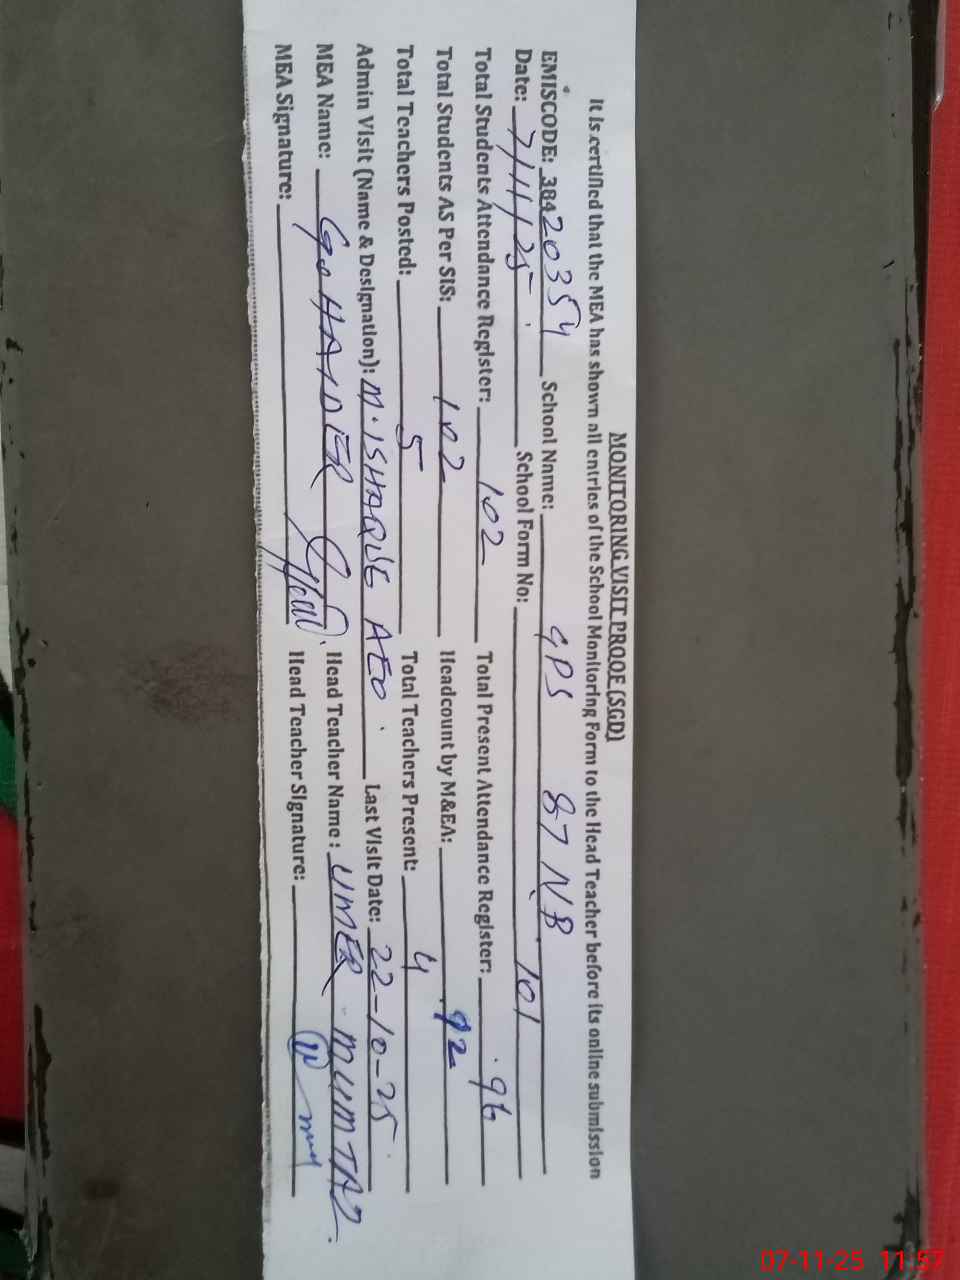 MONITORING VISIT PROOF (SGD)
It is certified that the MEA has shown all entries of the School Monitoring Form to the Head Teacher before its online submission
EMISCODE: 38420354 School Name: GPS 87 NB
Date: 7/11/25 School Form No: 101
Total Students Attendance Register: 102 Total Present Attendance Register: 96
Total Students AS Per SIS: 102 Headcount by M&EA: 92
Total Teachers Posted: 5 Total Teachers Present: 4
Admin Visit (Name & Designation): M. ISHAQUE AEO. Last Visit Date: 22-10-25
MEA Name: HAIDER Head Teacher Name: UMER MUMTAZ.
MEA Signature: Head Teacher Signature:
07-11-25 11:57